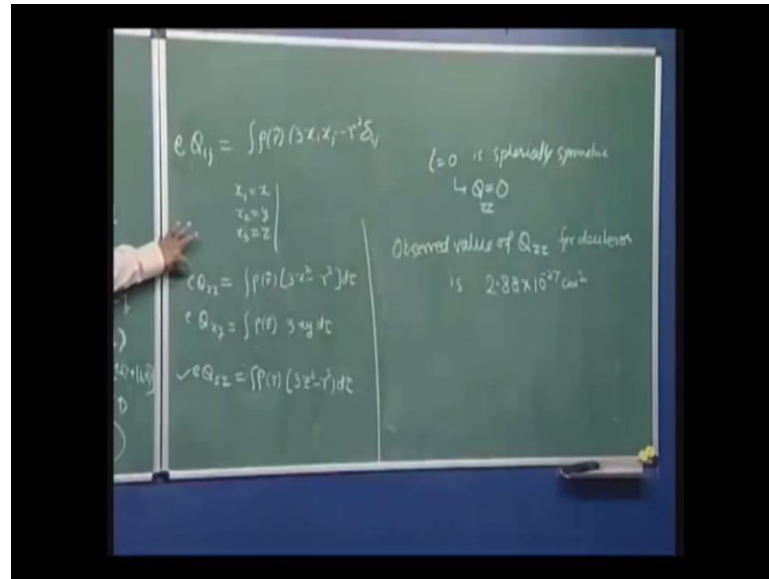 e Q_ij = ∫ρ(r̄) (3x_i x_j - r² δ_ij
x₁ = x
x₂ = y
x₃ = z
e Q_xx = ∫ρ(r̄) [3x² - r²] dτ
e Q_xy = ∫ρ(r̄) 3xy dτ
✓ e Q_zz = ∫ρ(r) (3z² - r²) dτ
l=0 is spherically symmetric
↳ Q=0
zz
Observed value of Q_zz for deuteron
is 2.88×10⁻²⁷ cm²